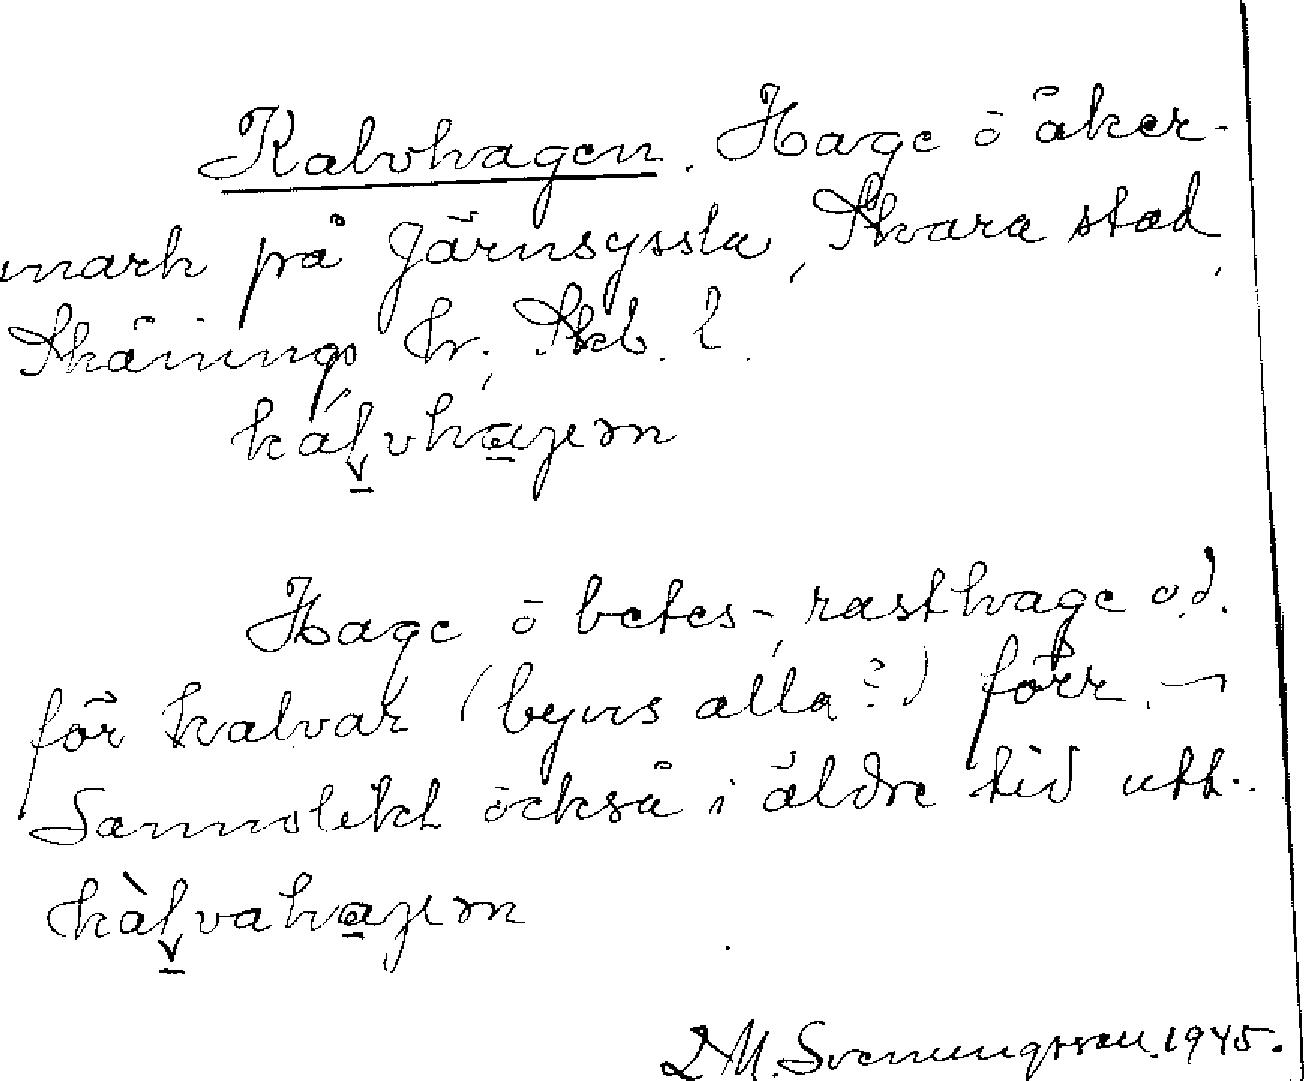 Kalvhagen. Hage ö åker-
mark på Järnsyssla, Skara stad,
Skånings hr, Skb. l.
kálvhagen
Hage ö betes-, rasthage o.d.
för kalvar (byns alla?) förr. ⁓
Sannolikt också i äldre tid utt.
kàlvahagen
Svenungsson. 1945.